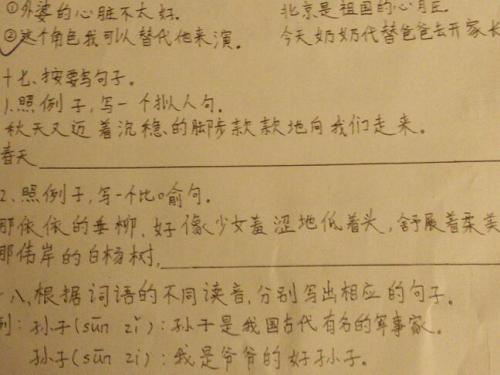 ①外婆的心脏不太好。 北京是祖国的心脏。
②这个角色我可以替代他来演。 今天奶奶代替爸爸去开家长
十七、按要写句子。
1.照例子,写一个拟人句。
秋天又迈着沉稳的脚步款款地向我们走来。
春天
2.照例子,写一个比喻句。
那依依的垂柳,好像少女羞涩地低着头,舒展着柔美
那伟岸的白杨树,
十八、根据词语的不同读音,分别写出相应的句子。
例:孙子(sūn zǐ):孙子是我国古代有名的军事家。
孙子(sūn zi):我是爷爷的好孙子。